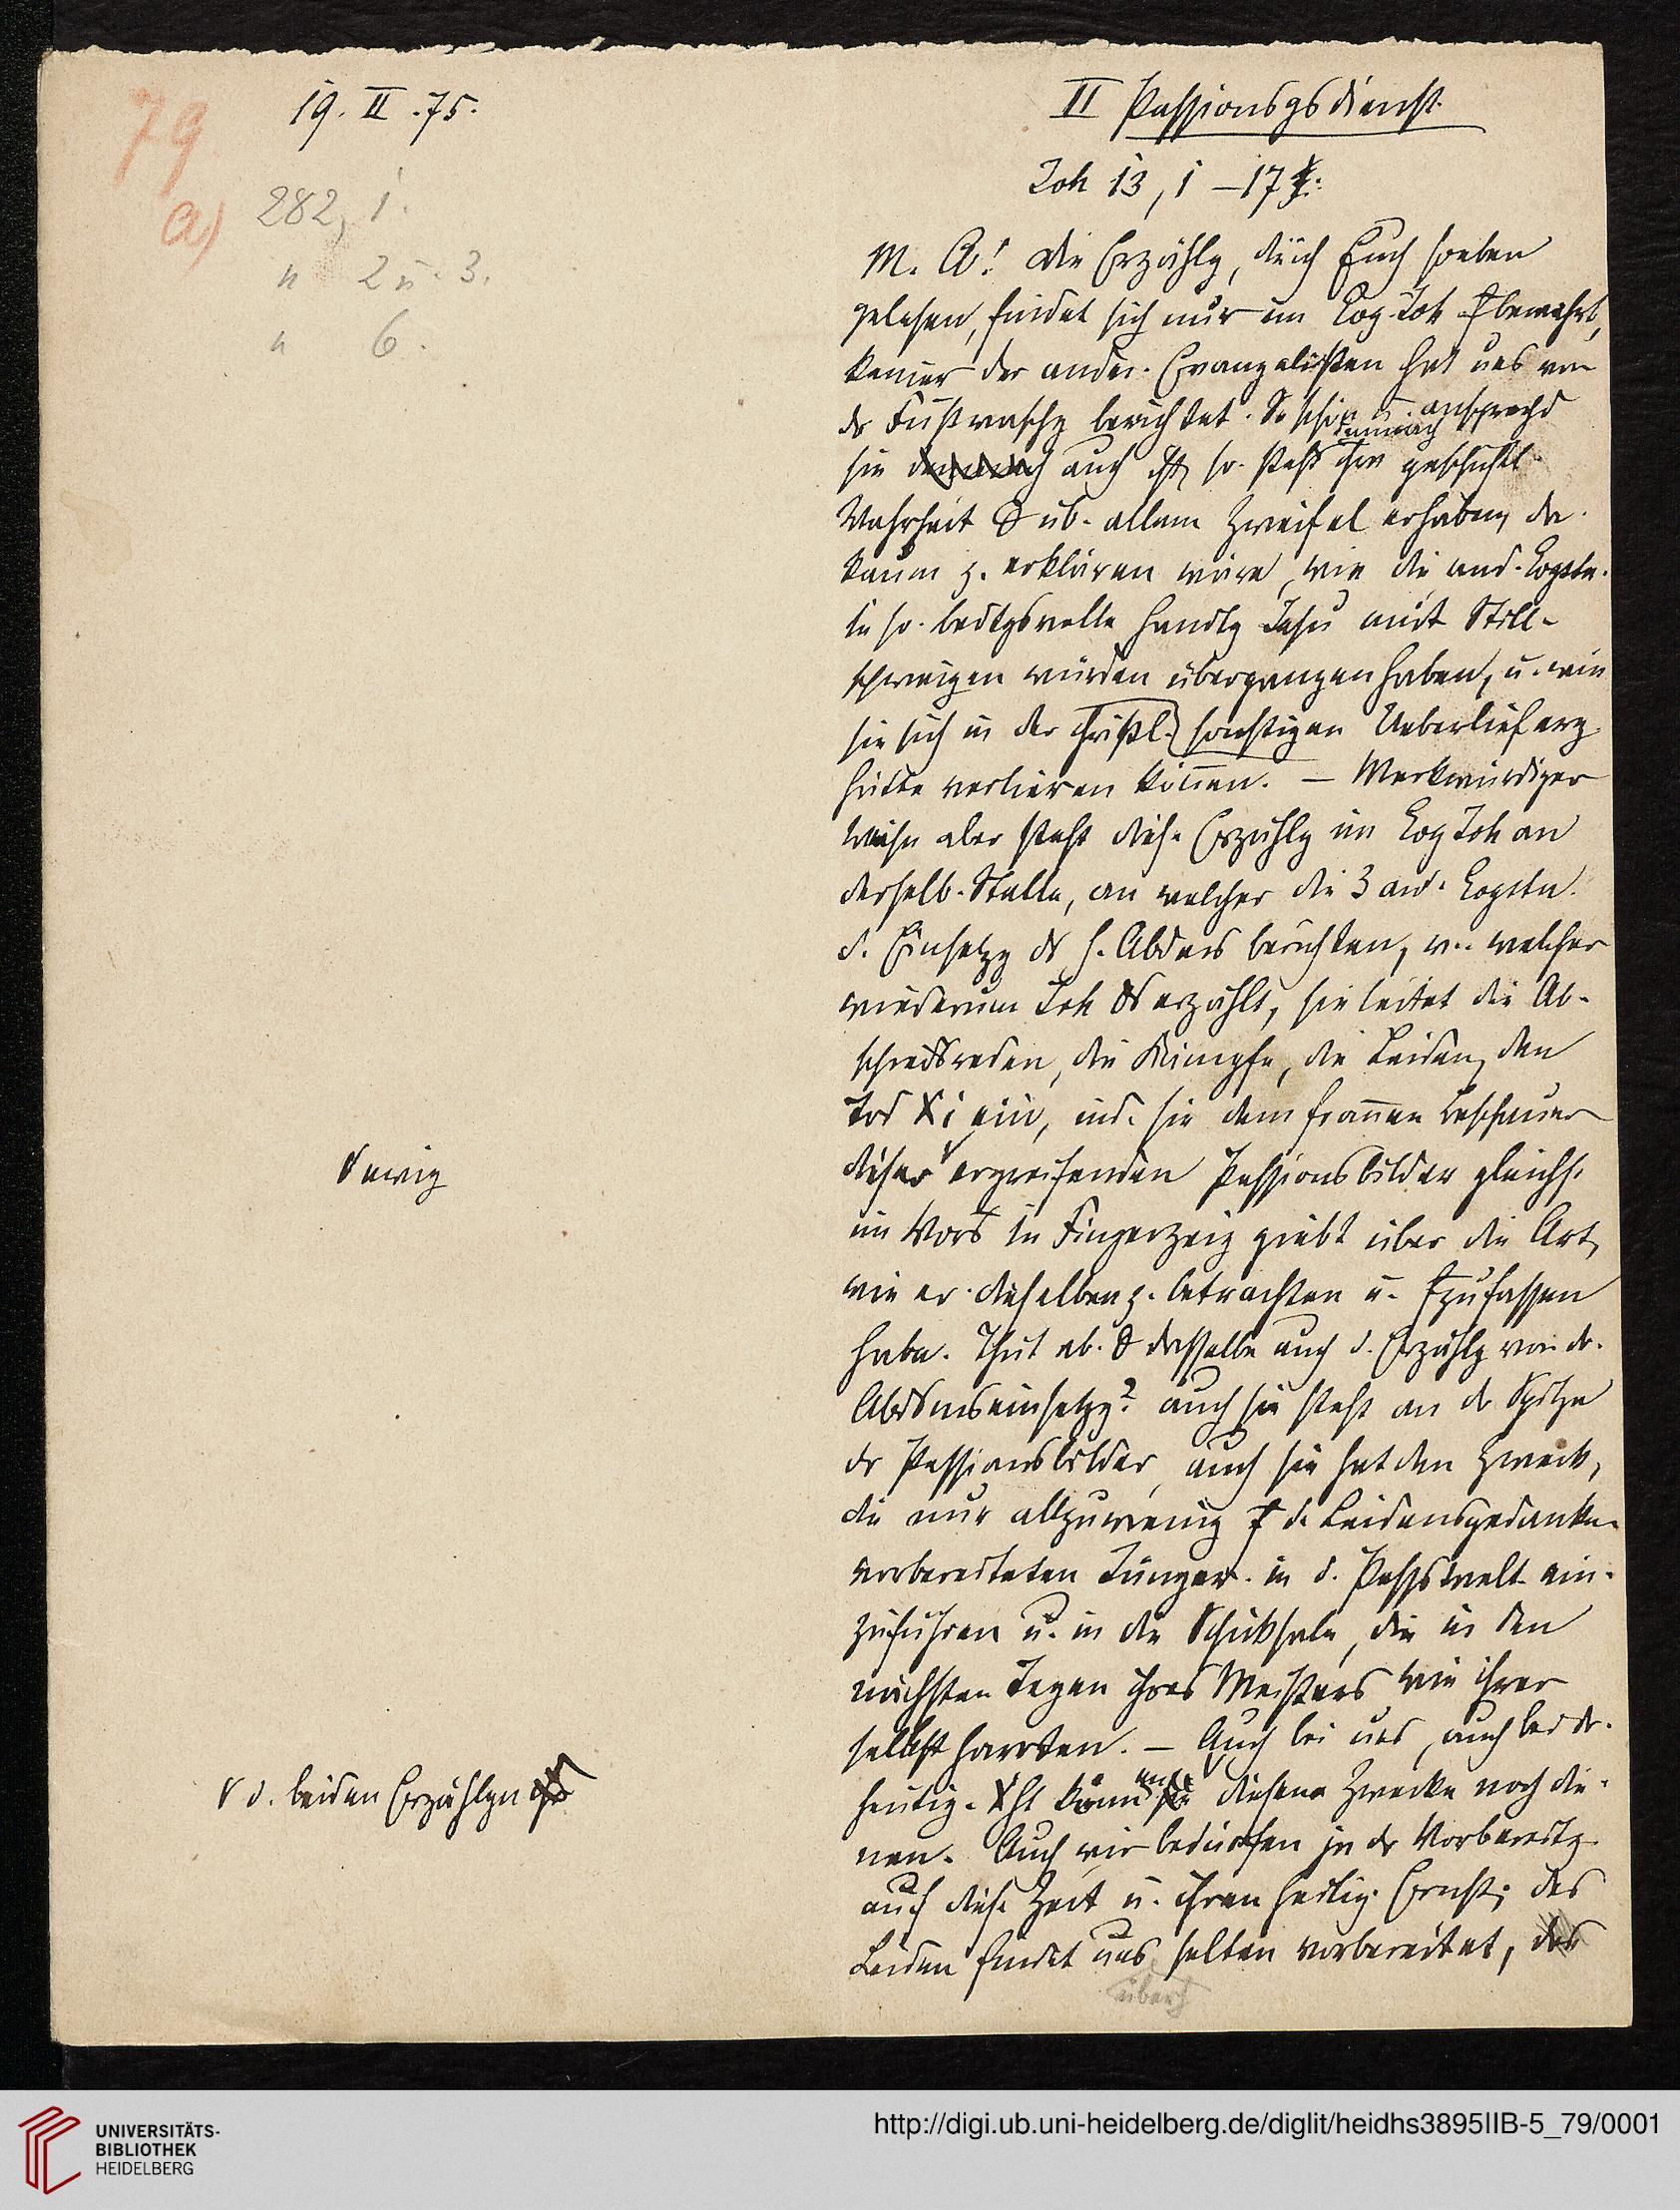 79
a)
19. II. 75.
282, 1.
" 2 u. 3.
" 6.
II Passionsgsdienst.
Joh 13, 1 – 17
M. A! Die Erzählg, die ich Euch soeben
gelesen, findet sich nur im Evg. Joh bewahrt,
keiner der ander. Evangelisten hat uns von
dr Fußwaschg berichtet. So schön u. ansprechd
demnach
sie auch ist, so steht ihre geschichtl.
Wahrheit üb. allem Zweifel erhaben, da
kaum z. erklären wäre, wie die and. Evgstn.
so bedtgsvolle Handlg Jesu mit Still-
schweigen würden übergangen haben, u. wie
sie sich in der christl. sonstigen Ueberlieferg
hätte verlieren können. – Merkwürdiger
Weise aber steht diese Erzählg im Evg Joh an
derselb. Stelle, an welcher die 3 and. Evgstn.
d. Einsetzg ds h. Abdms berichten, v. welcher
wiederum Joh erzählt, sie leitet die Ab-
schiedsreden, die Kämpfe, die Leiden, den
Tod Xi ein, ind. sie dem frommen Beschauer
dieser ergreifenden Passionsbilder gleichs.
ewig
im Vors Fingerzeig giebt über die Art,
wie er dieselben z. betrachten u. fzufassen
habe. Thut ab. dasselbe auch d. Erzählg von dr.
Abdmseinsetzg? auch sie steht an dr Spitze
dr Passionsbilder, auch sie hat den Zweck,
die nur allzuwenig f d. Leidensgedanken
vorbereiteten Jünger in d. Passswelt ein-
zuführen u. in die Schicksale, die in den
nächsten Tagen ihres Meisters wie ihrer
selbst harrten. – Auch bei uns, auch bei dr.
d. beiden Erzählgn
heutig. Xht könn diesem Zwecke noch die-
nen. Auch wir bedürfen ja dr Vorbereitg
auf diese Zeit u. ihren heilig. Ernst; das
Leiden findet uns selten vorbereitet, das
über
UNIVERSITÄTS-
BIBLIOTHEK
HEIDELBERG
http://digi.ub.uni-heidelberg.de/diglit/heidhs3895IIB-5_79/0001